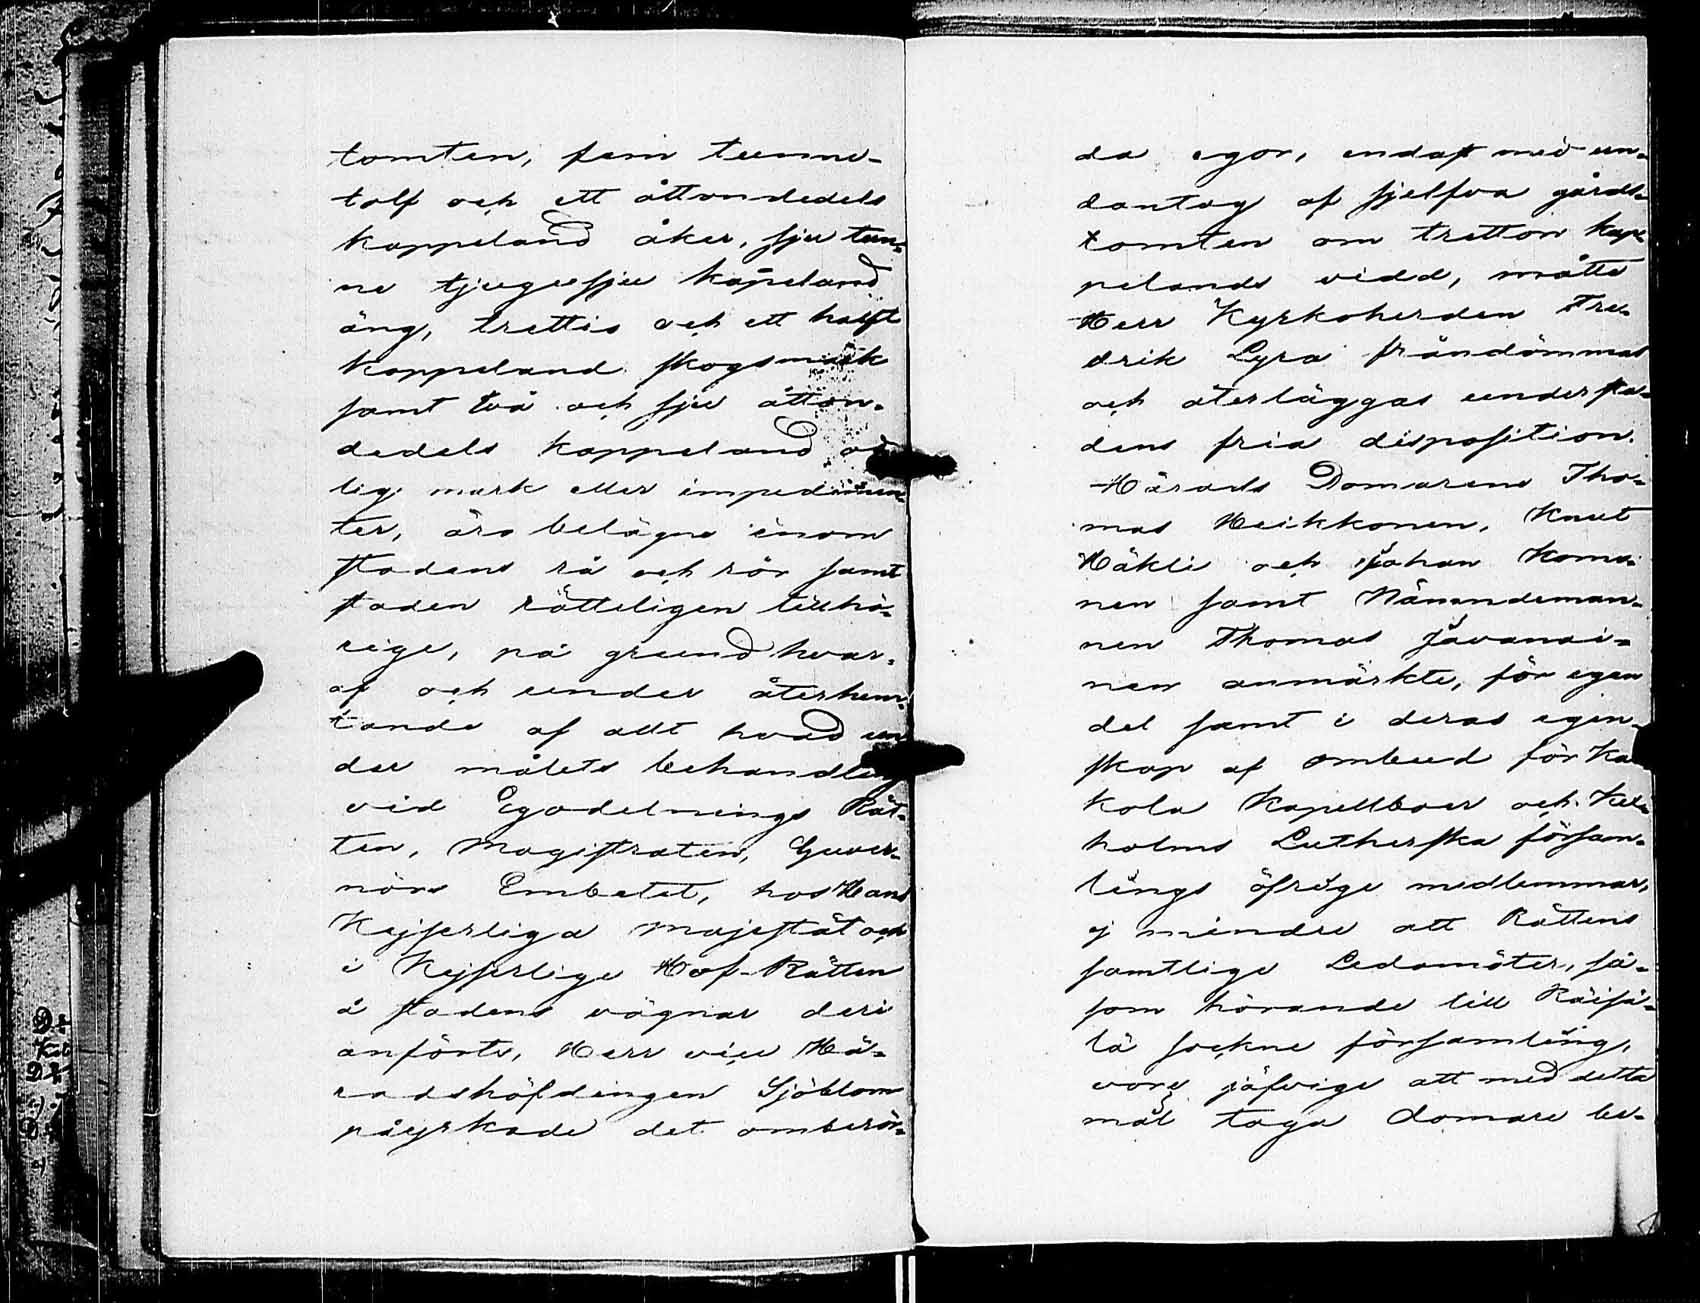 tomten, fem tunne-
tolf och ett åttondedels
kappeland åker, sju tun-
ne tjugusju kapeland
äng, trettio och ett halft
kappeland skogsmark
samt två och sju åtton-
dedels kappeland
lig mark eller impedimen-
ter, äro belägne inom
stadens rå och rör samt
staden rätteligen tillhö-
rige, på grund hvar-
af och under återhem-
tande af allt hvad un
der målets behandling
vid Egodelnings Rät-
ten, Magistraten, Guver-
nörs Embetet, hos Hans
Kejserliga Majestät och
i Kejserlige Hof-Rätten
å stadens vägnar deri
anförts, Herr vice Hä-
radshöfdingen Sjöblom
påyrkade det omberör-
da egor, endast med un-
dantag af sjelfva gårds-
tomten om tretton kap-
pelands vidd, måtte
Herr Kyrkoherden Fre-
drik Lyra fråndömmas
och återläggas under sta-
dens fria disposition.
Härads Domarene Tho-
mas Heikkonen, Knut
Häkli och Johan Komo-
nen samt Nämndeman-
nen Thomas Jävanai-
nen anmärkte, för egen
del samt i deras egen-
skap af ombud för
kola Kapellboer och Kex-
holms Lutherska försam-
lings öfrige medlemmar,
ej mindre att Rättens
samtlige Ledamöter, så-
som hörande till Räisä-
lä sockne församling,
vore jäfvige att med detta
mål taga domare be-